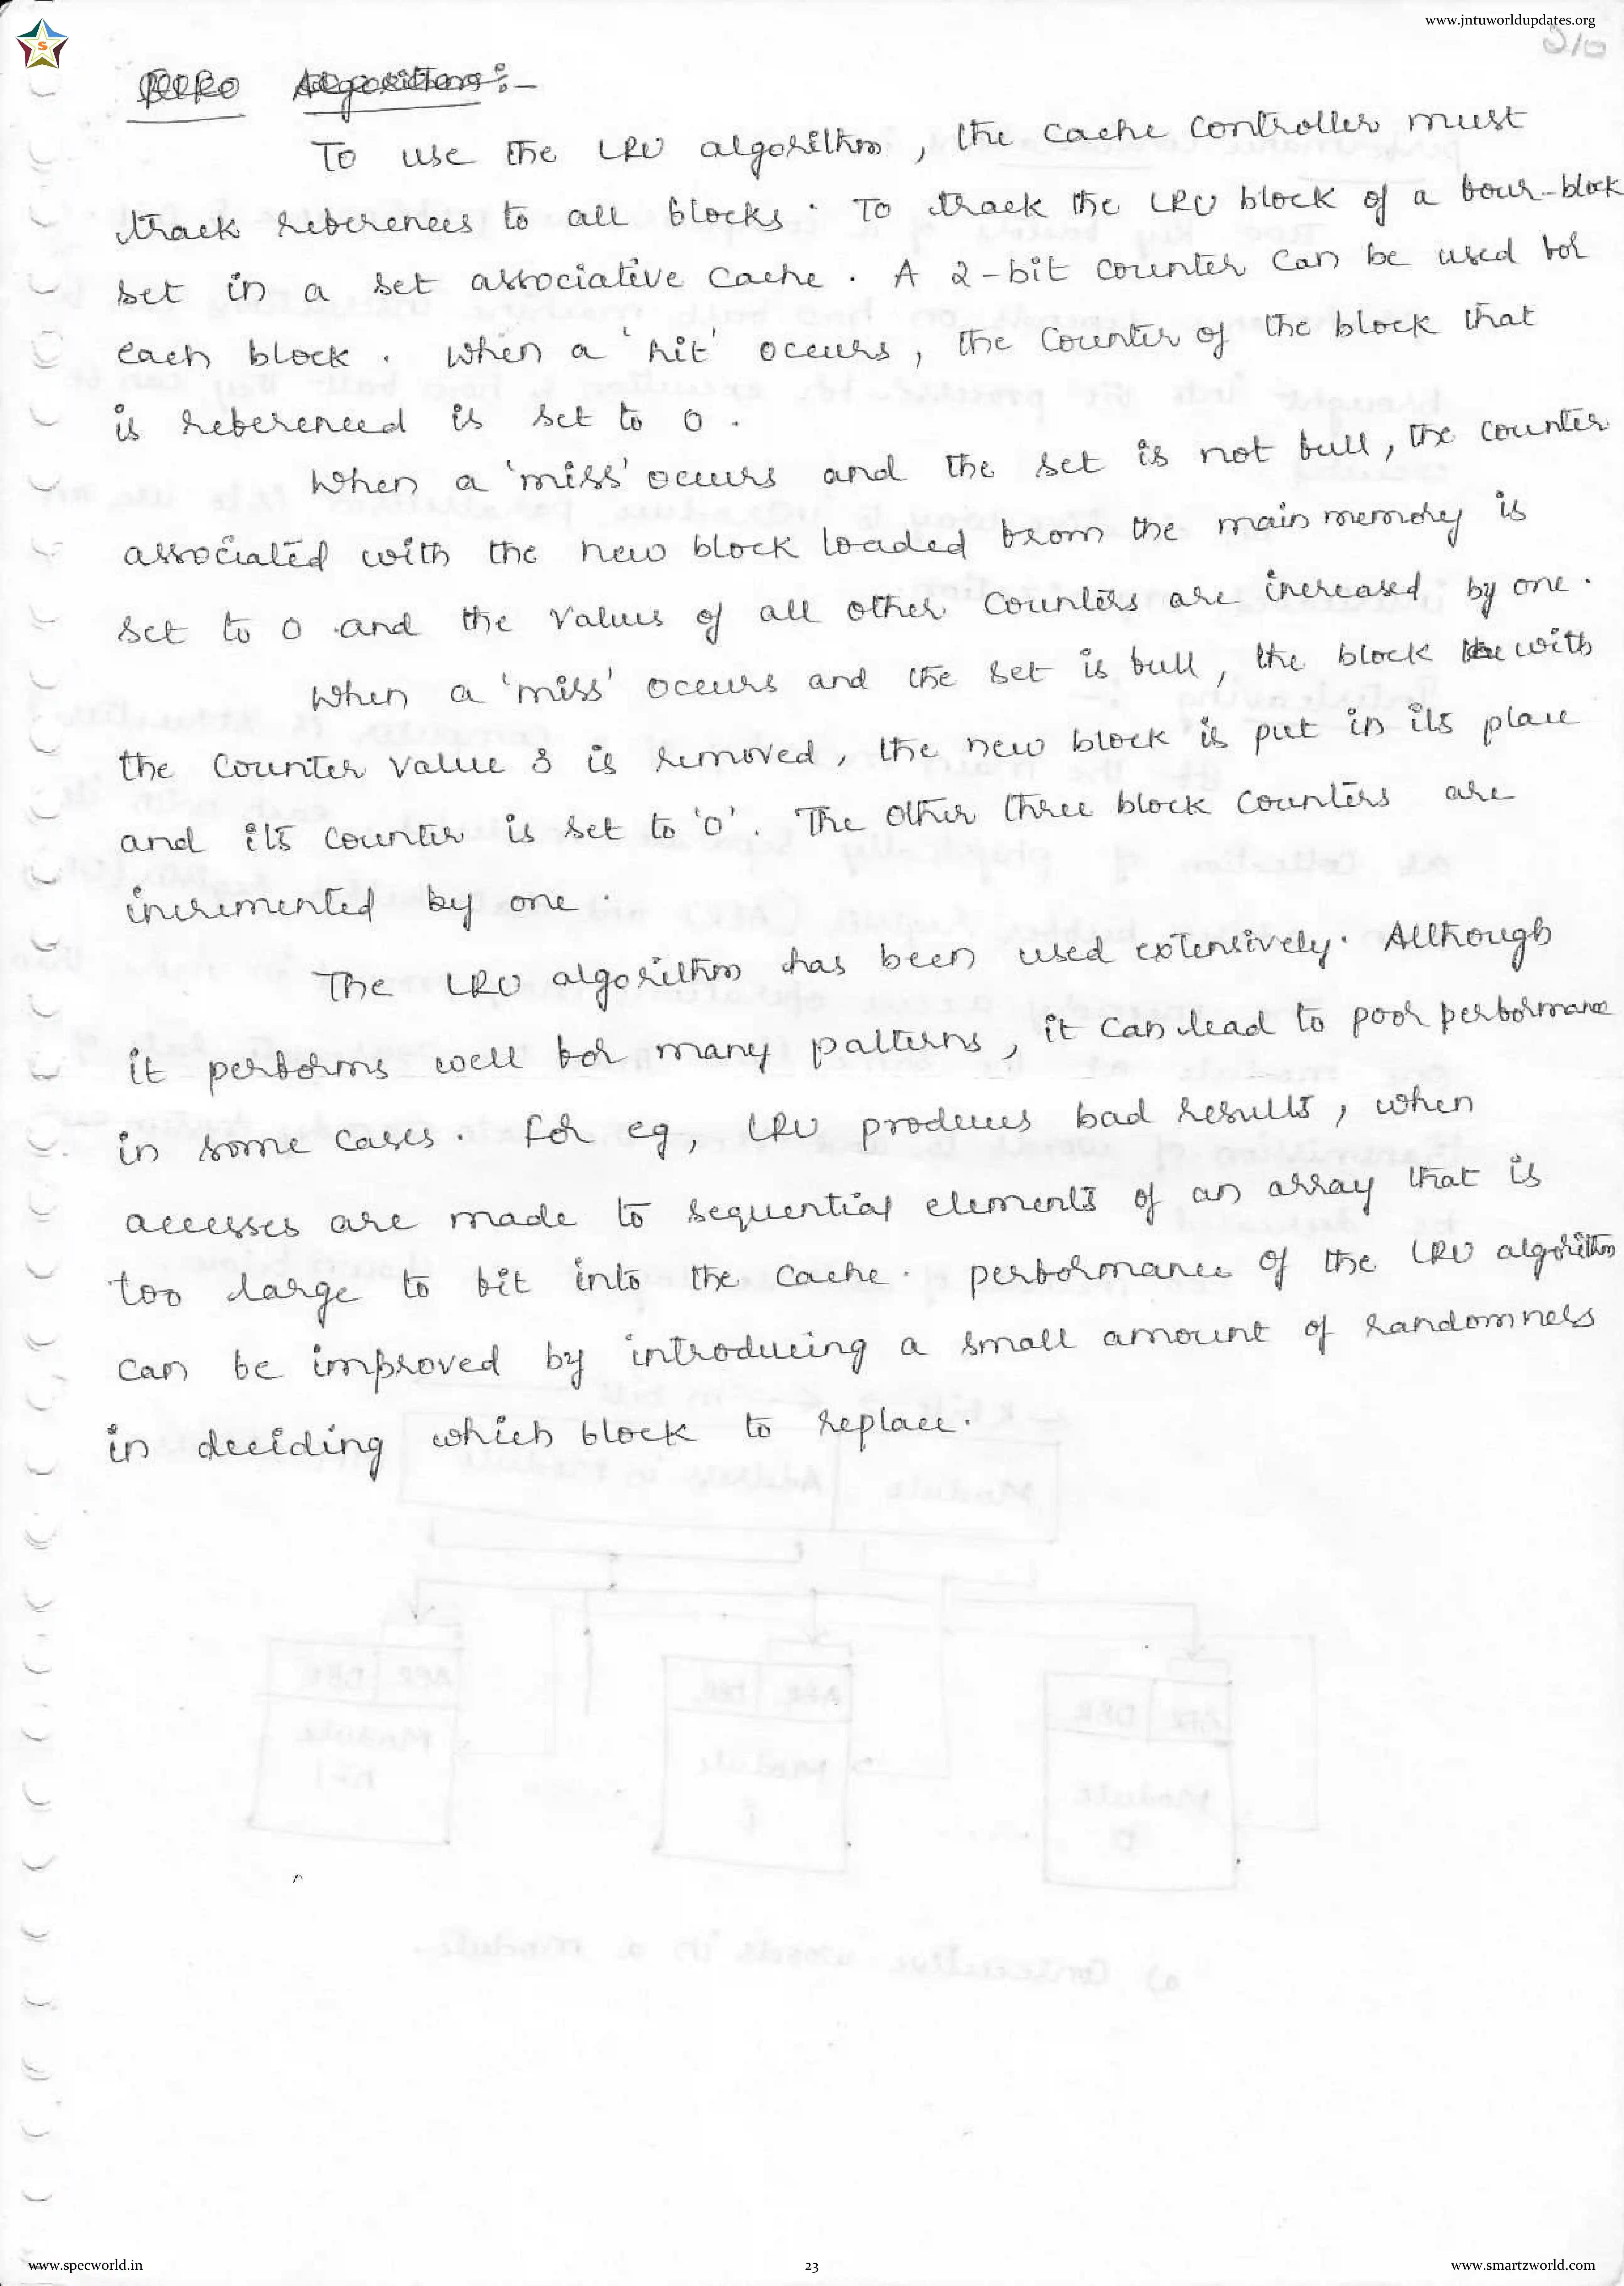 www.jntuworldupdates.org
Algorithm:-
To use the LRU algorithm, the cache controller must
track references to all blocks. To track the LRU block of a four-block
set in a set associative cache. A 2-bit counter can be used for
each block. When a 'hit' occurs, the counter of the block that
is referenced is set to 0.
When a 'miss' occurs and the set is not full, the counter
associated with the new block loaded from the main memory is
set to 0 and the values of all other counters are increased by one.
When a 'miss' occurs and the set is full, the block with
the counter value 3 is removed, the new block is put in its place
and its counter is set to '0'. The other three block counters are
incremented by one.
The LRU algorithm has been used extensively. Although
it performs well for many patterns, it can lead to poor performance
in some cases. For eg, LRU produces bad results, when
accesses are made to sequential elements of an array that is
too large to fit into the cache. performance of the LRU algorithm
can be improved by introducing a small amount of randomness
in deciding which block to replace.
www.specworld.in
23
www.smartzworld.com